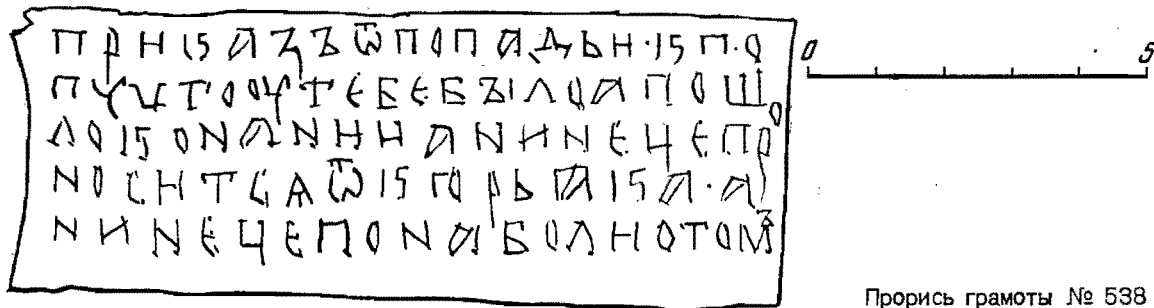 ПРИКАЗЪѾПОПАДЬИ·КП·О
ПУЦТООУТЕБЕБЪІЛОАПОШ
ЛОКОNАNИИАNИNЕЦЕПРО
NОСИТСѦѾКЮРЬꙖКА·А
NИNЕЦЕПОNАБОЛИОТОМЪ
0 5
Прорись грамоты № 538